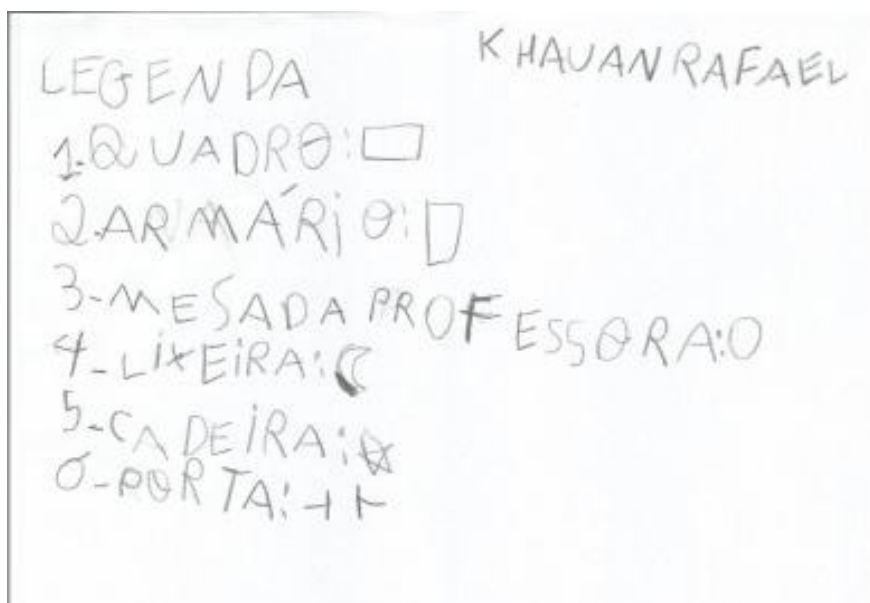 KHAUAN RAFAEL
LEGENDA
1-QUADRO:
2-ARMÁRIO:
3-MESA DA PROFESSORA:
4-LIXEIRA:
5-CADEIRA:
6-PORTA: